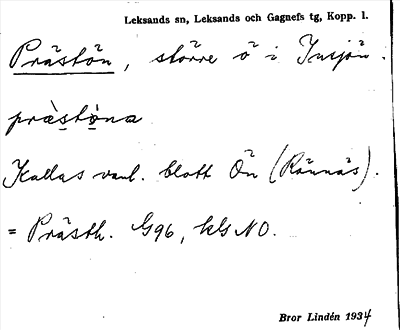 Leksands sn, Leksands och Gagnefs tg, Kopp. l.
Prästön, större ö i Insjön.
præ̀stö̀na
Kallas vanl. blott Ön (Rönnäs).
= Prästh. G96, klG NO.
Bror Lindén 1934